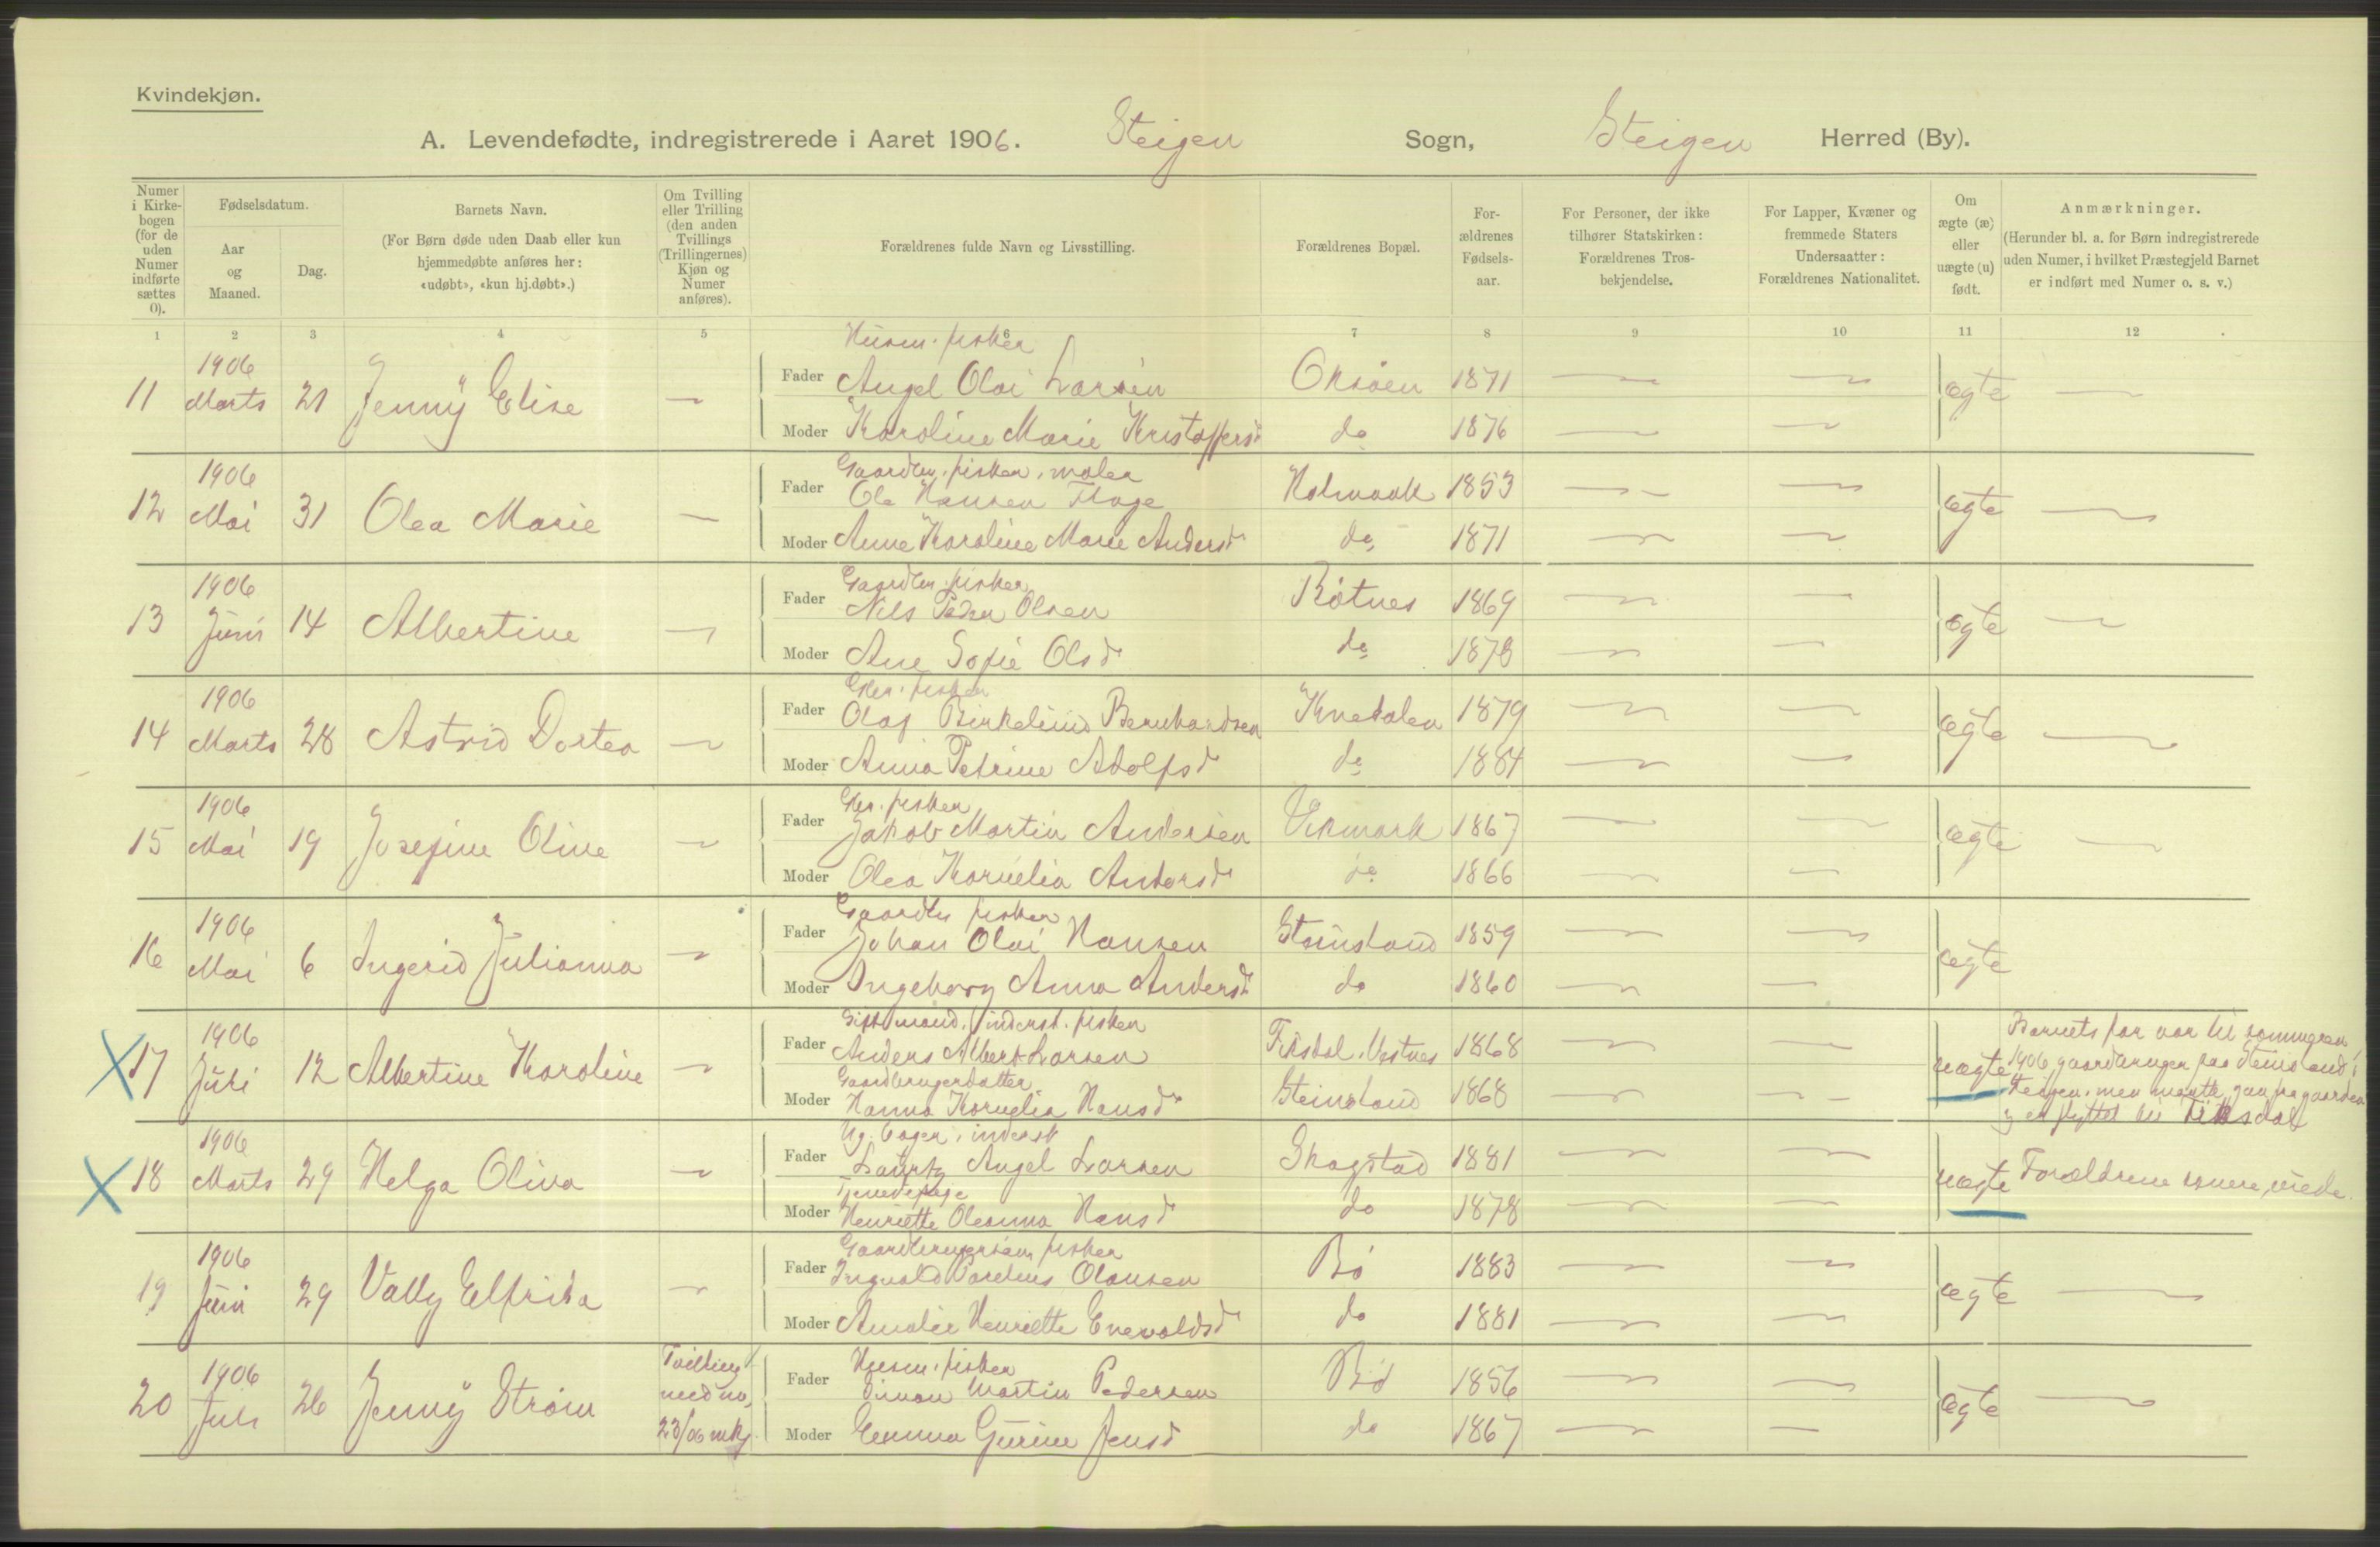 Kvindekjøn.
A. Levendefødte, indregistrerede i Aaret 1906. Steigen Sogn, Steigen Herred (By).
Numer i Kirke-bogen (for de uden Numer indførte sættes 0).
Fødselsdatum.
Aar og Maaned.
Dag.
Barnets Navn.
(For Børn døde uden Daab eller kun hjemmedøbte anføres her: «udøbt», «kun hj.døbt».)
Om Tvilling eller Trilling (den anden Tvillings (Trillingernes) Kjøn og Numer anføres).
Forældrenes fulde Navn og Livsstilling.
Forældrenes Bopæl.
For-ældrenes Fødsels-aar.
For Personer, der ikke tilhører Statskirken: Forældrenes Tros-bekjendelse.
For Lapper, Kvæner og fremmede Staters Undersaatter: Forældrenes Nationalitet.
Om ægte (æ) eller uægte (u) født.
Anmærkninger.
(Herunder bl. a. for Børn indregistrerede uden Numer, i hvilket Præstegjeld Barnet er indført med Numer o. s. v.)
1 2 3 4 5 6 7 8 9 10 11 12
Husm. fisker
11 1906 Marts 21 Jenny Elise — Fader Angel Olai Larsen Oksøen 1871 — — ægte —
Moder Karoline Marie Kristoffersd do 1876 — —
Gaardbr. fisker, maler
12 1906 Mai 31 Olea Marie — Fader Ole Hansen Flage Holmaak 1853 — — ægte —
Moder Anne Karoline Marie Andersd do 1871 — —
Gaardbr. fisker
13 1906 Juni 14 Albertine — Fader Nils Peder Olsen Røtnes 1869 — — ægte —
Moder Ane Sofie Olsd do 1878 — —
fisker
14 1906 Marts 28 Astrid Dortea — Fader Olaf Birkelund Bernhardsen 1879 — — ægte —
Moder Anna Petrine Adolfsd do 1884 — —
fisker
15 1906 Mai 19 Josefine Oline — Fader Jakob Martin Andersen 1867 — — ægte —
Moder Olea Kornelia Andersd do 1866 — —
Gaardbr fisker
16 1906 Mai 6 Ingerid Julianna — Fader Johan Olai Hansen Steinsland 1859 — — ægte
Moder Ingeborg Anna Andersd do 1860 — —
Gift mand, inderst. fisker
17 1906 Juli 12 Albertine Karoline — Fader Anders Albert Larsen Fiksdal. Vestnes 1868 — — uægte
Gaardbrugerdatter
Moder Hanna Kornelia Hansd Steinsland 1868 — —
Barnets far var til sommeren
1906 gaardbruger paa Steinsland i
Steigen, men maatte gaa fra gaarden
og er flyttet til Fiksdal
Ug. inderst
18 1906 Marts 29 Helga Oliva — Fader Lauritz Angel Larsen Skagstad 1881 — — uægte Forældrene senere viede.
Tjenestepige
Moder Henriette Oleanna Hansd do 1878 — —
Gaardbrugersøn, fisker
19 1906 Juni 29 Vally Elfrida — Fader Ingvald Parelius Olausen Bø 1883 — — ægte —
Moder Amalie Henriette Enevoldsd do 1881 — —
Husm. fisker
20 1906 Juli 26 Jenny Strøm Tvilling med no, 23/06 mkj. Fader Simon Martin Pedersen Bø 1856 — — ægte —
Moder Emma Gurine Jensd do 1867 — —